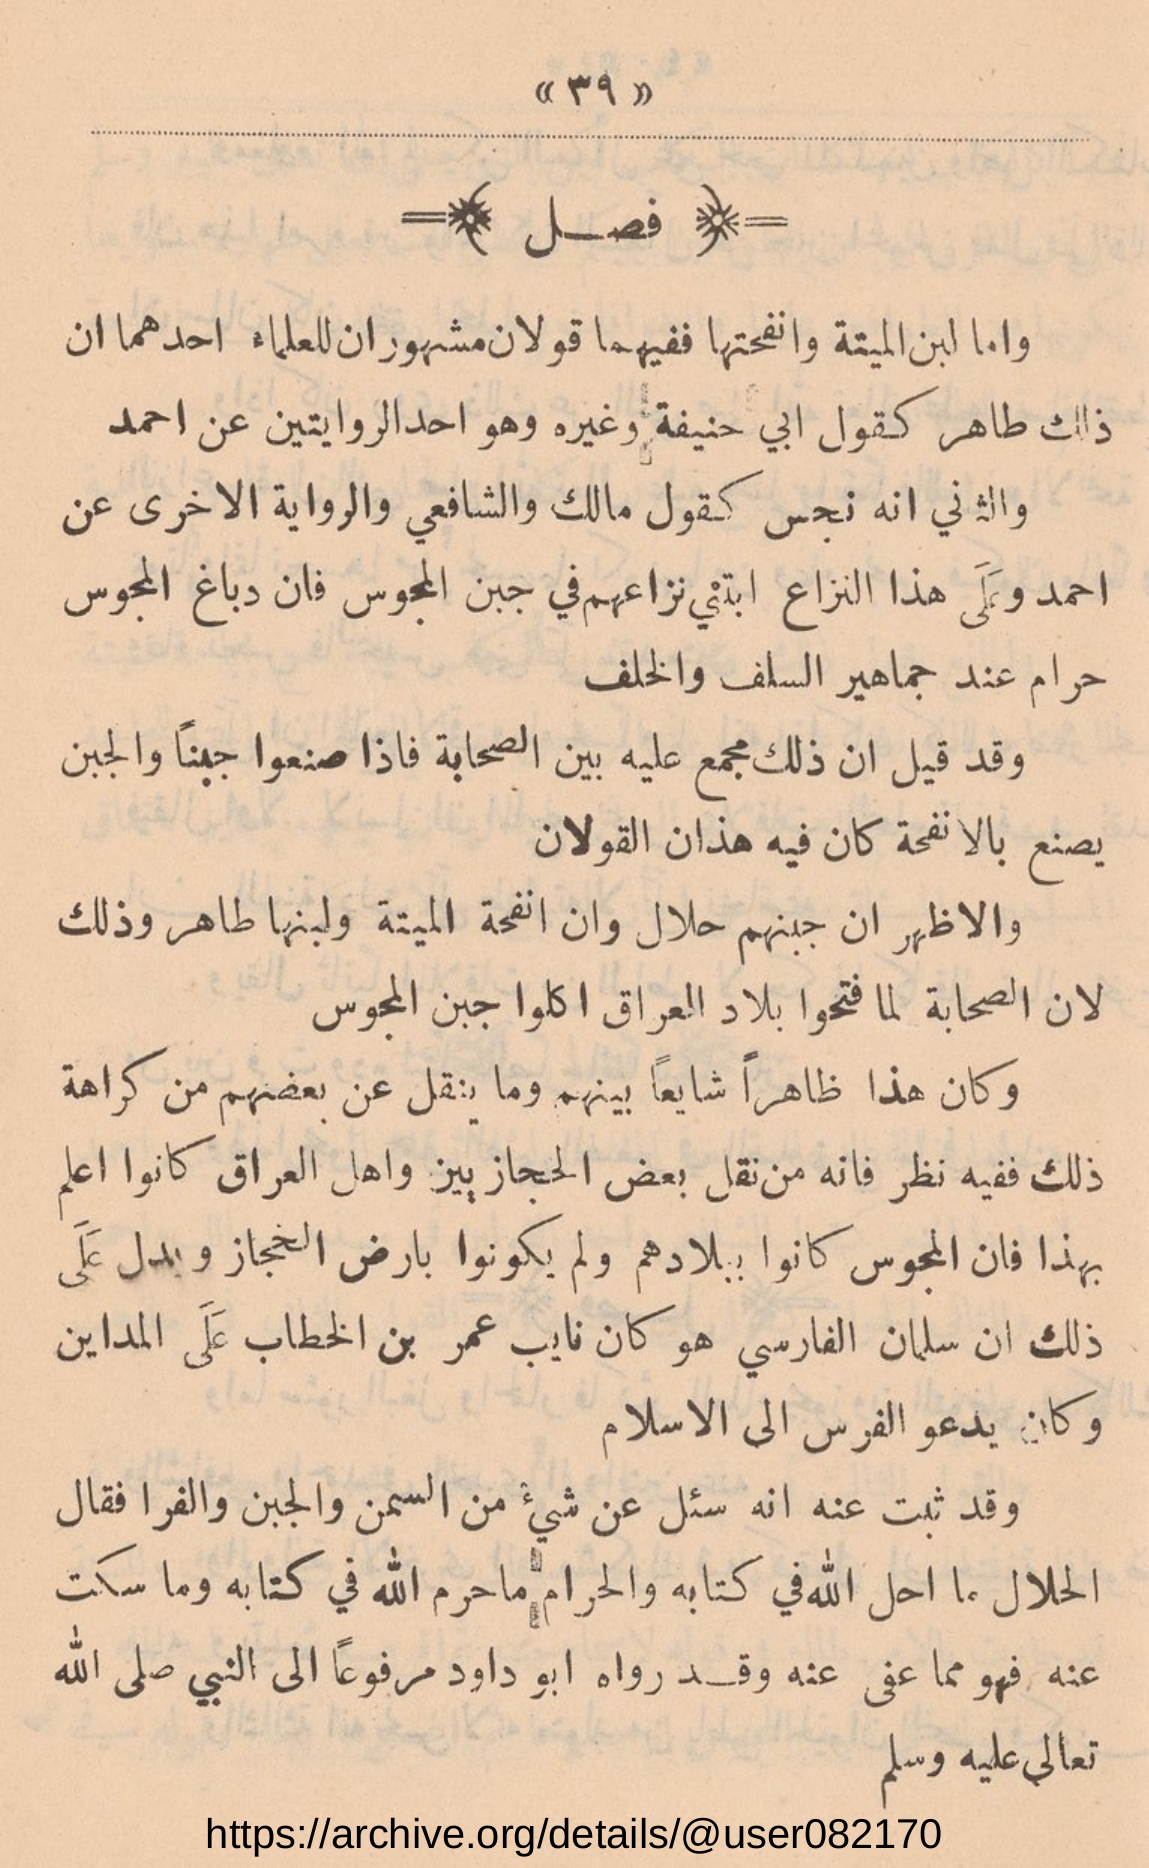 « ٣٩ »
فصـــل
واما لبن الميتة وانفحتها ففيهما قولان مشهوران للعلماء احدهما ان
ذلك طاهر كقول ابي حنيفة وغيره وهو احد الروايتين عن احمد
والثاني انه نجس كقول مالك والشافعي والرواية الاخرى عن
احمد وعَلَى هذا النزاع ابتنى نزاعهم في جبن المجوس فان دباغ المجوس
حرام عند جماهير السلف والخلف
وقد قيل ان ذلك مجمع عليه بين الصحابة فاذا صنعوا جبناً والجبن
يصنع بالانفحة كان فيه هذان القولان
والاظهر ان جبنهم حلال وان انفحة الميتة ولبنها طاهر وذلك
لان الصحابة لما فتحوا بلاد العراق اكلوا جبن المجوس
وكان هذا ظاهراً شايعاً بينهم وما ينقل عن بعضهم من كراهة
ذلك ففيه نظر فانه من نقل بعض الحجازيين واهل العراق كانوا اعلم
بهذا فان المجوس كانوا ببلادهم ولم يكونوا بارض الحجاز ويدل عَلَى
ذلك ان سلمان الفارسي هو كان نايب عمر بن الخطاب عَلَى المداين
وكان يدعو الفرس الى الاسلام
وقد ثبت عنه انه سئل عن شيءٔ من السمن والجبن والفرا فقال
الحلال ما احل الله في كتابه والحرام ماحرم الله في كتابه وما سكت
عنه فهو مما عفى عنه وقـــد رواه ابو داود مرفوعاً الى النبي صلى الله
تعالى عليه وسلم
https://archive.org/details/@user082170